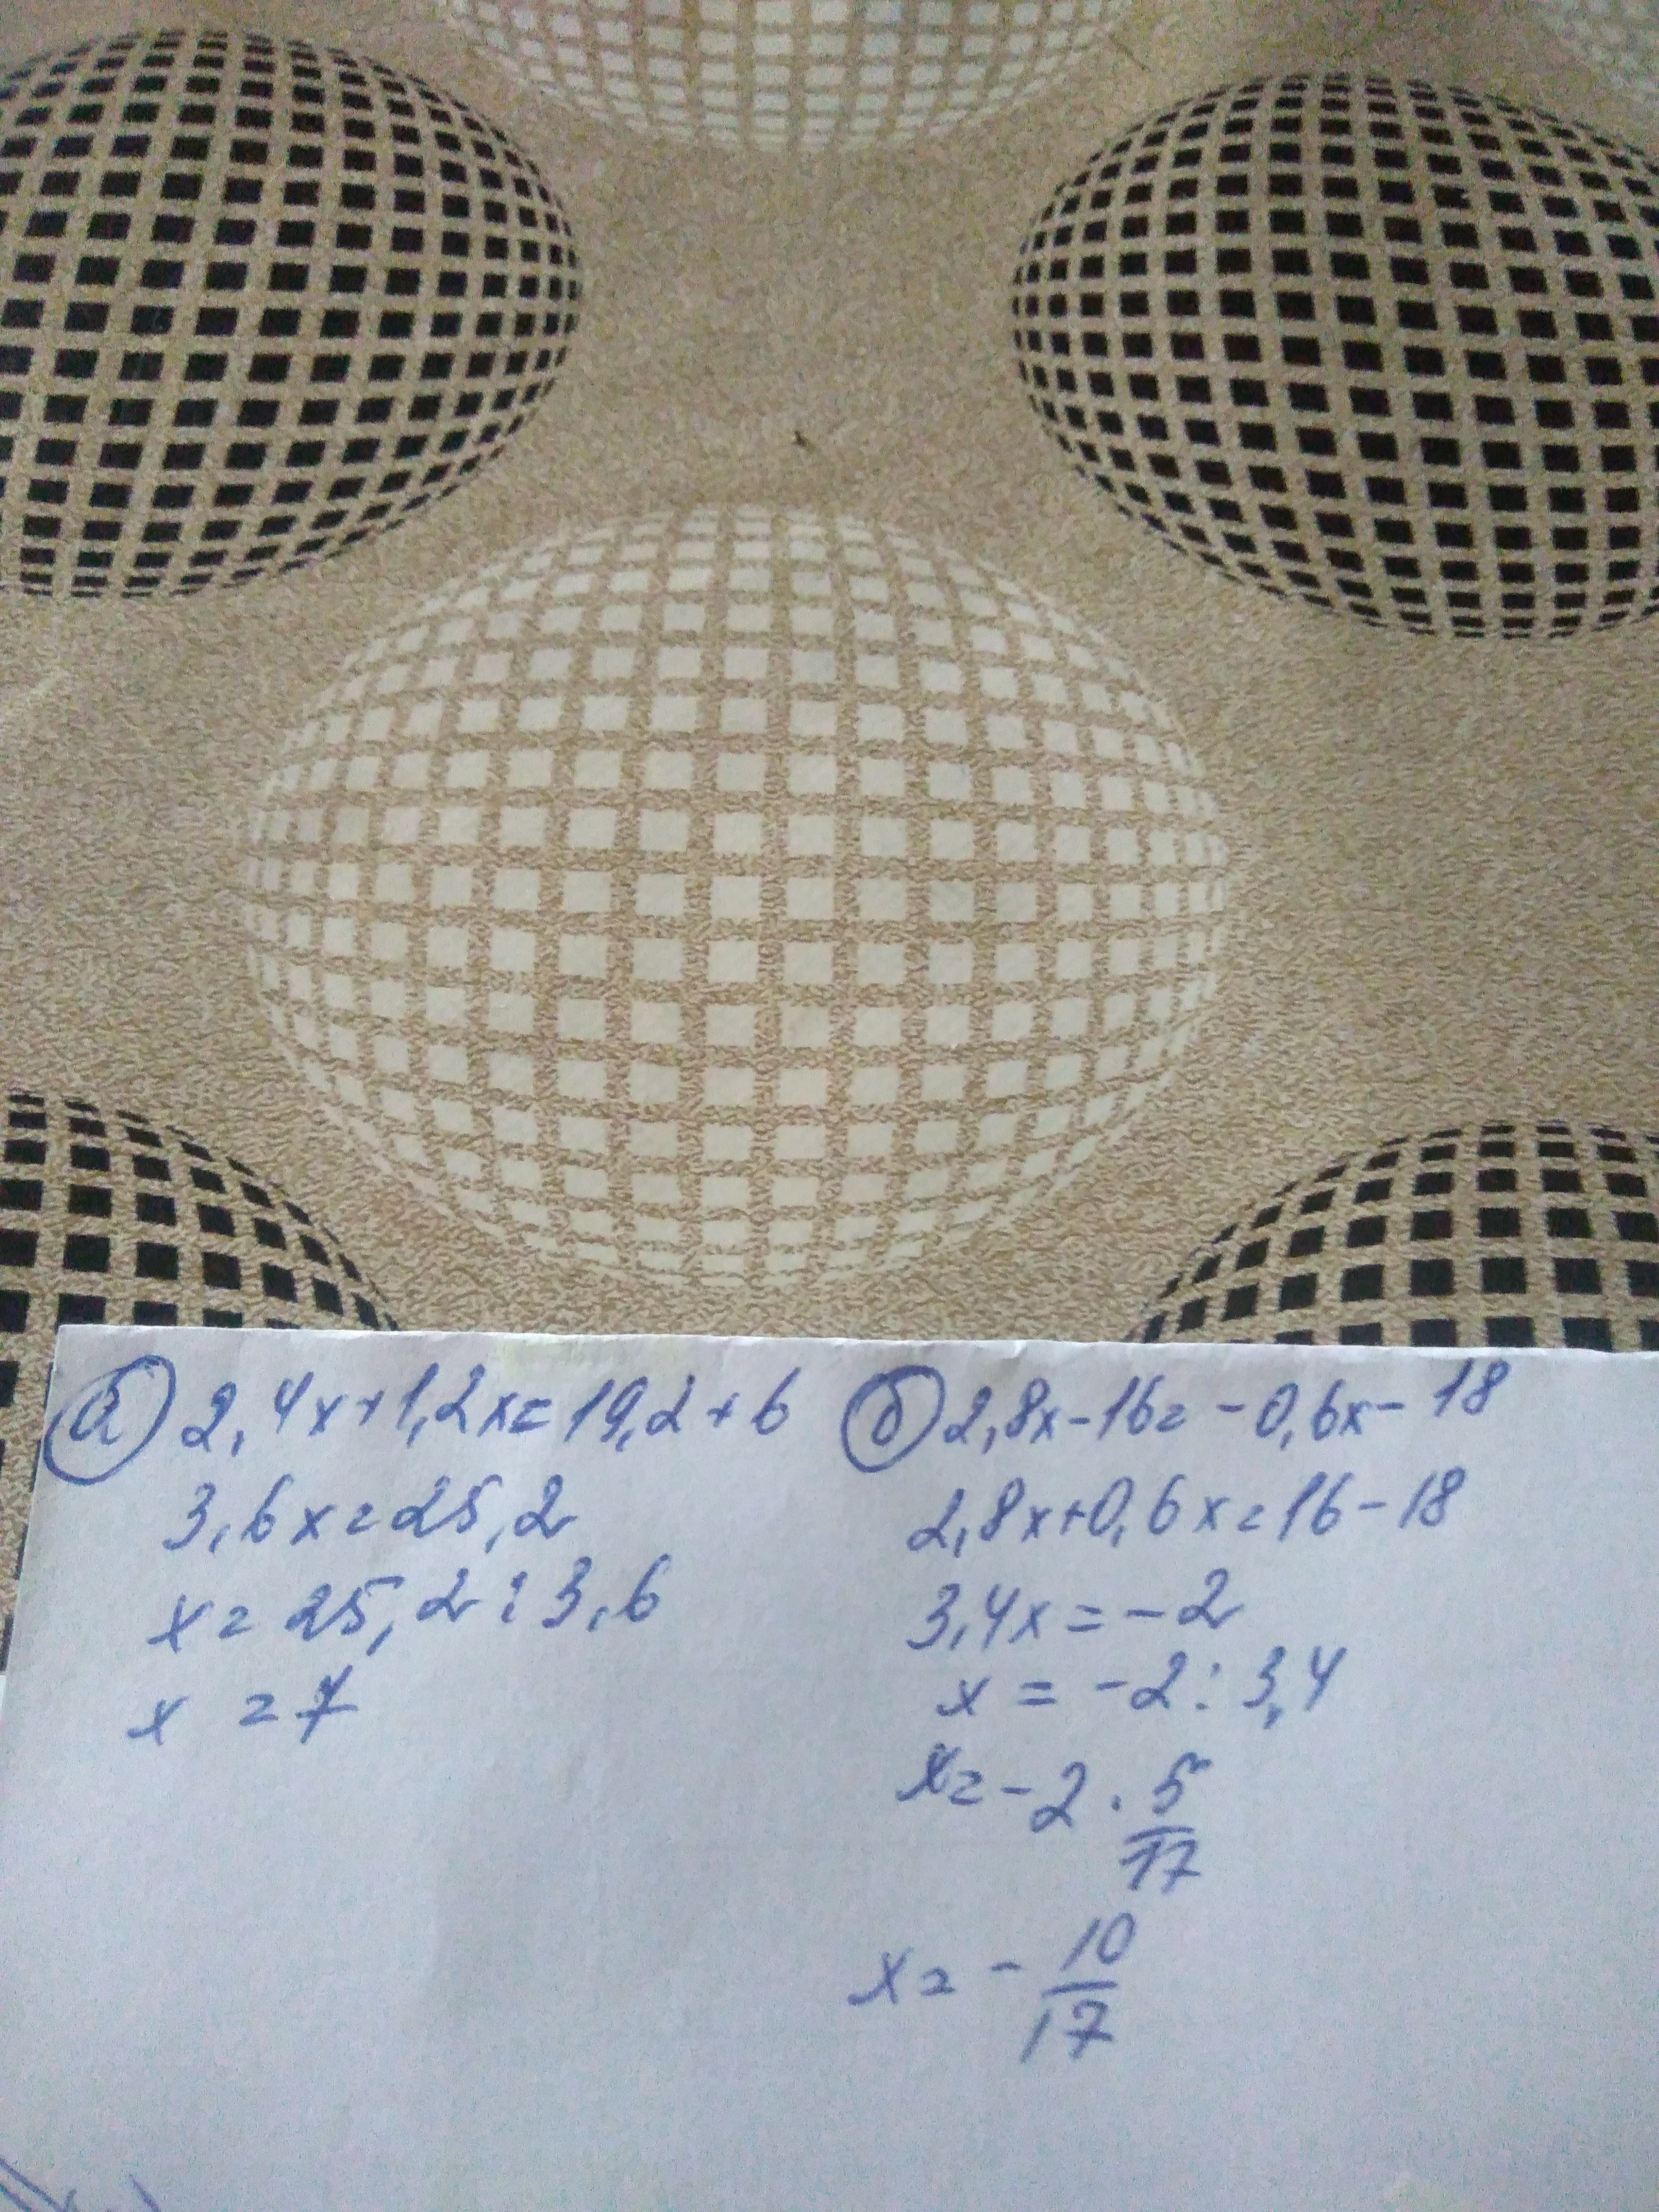 а) 2,4x+1,2x=19,2+6
3,6x=25,2
x=25,2:3,6
x =7
б) 2,8x-16=-0,6x-18
2,8x+0,6x=16-18
3,4x=-2
x=-2:3,4
x=-2·5/17
x=-10/17